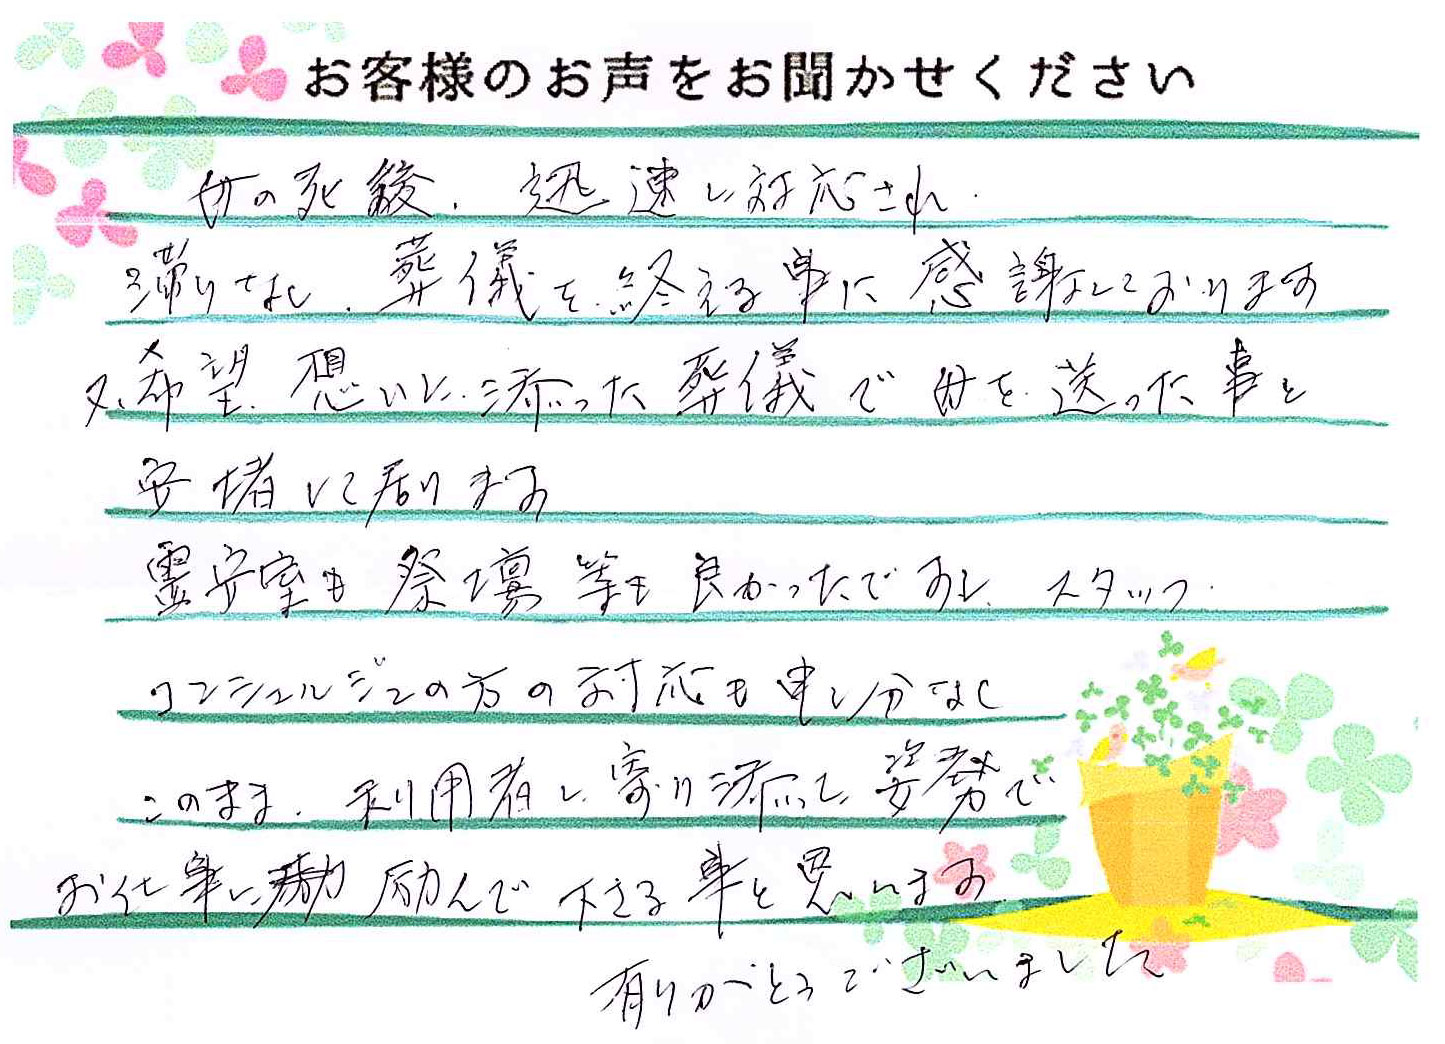 お客様のお声をお聞かせください
母の死後、迅速に対応され、
滞りなく、葬儀を終える事に感謝しております
又、希望、想いに添った葬儀で母を送った事と
安堵して居ります
霊安室も祭壇等も良かったですし、スタッフ、
コンシェルジュの方の対応も申し分なし
このまま、利用者に寄り添った姿勢で
お仕事に励んで下さる事と思います
有りがとうございました